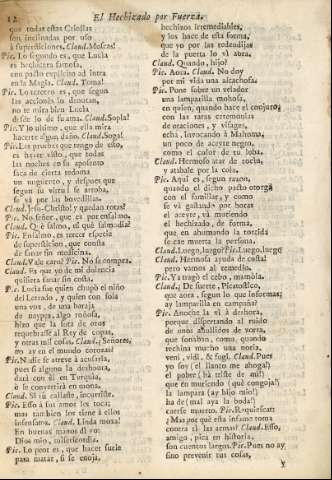 12 El Hechizado por Fuerza.
que todas estas Criollas
son inclinadas por uso
à supersticiones. Claud. Moscas!
Pic. Lo segundo es, que Lucia
es hechicera famosa,
con pacto explicito ad intra
en la Magia. Claud. Toma!
Pic. Lo tercero es, que segun
las acciones lo denotan,
no te mira bien Lucia
desde lo de su ama. Claud. Sopla!
Pic. Y lo ultimo, que ella mira
hacerte algun daño. Claud. Soga!
Pic. Las pruebas que tengo de esto,
es haver visto, que todas
las noches en su aposento
saca de cierta redoma
un unguento, y despues que
segun su virtud se arroba,
se và por las bovedillas.
Claud. Jesu-Christo! y quedan rotas?
Pic. No señor, que es por ensalmo.
Claud. Què salmo, ni què salmodia?
Pic. Ensalmo, es tercer especie
de supersticion, que consta
de sanar sin medicina.
Claud. Vale caro? Pic. No se compra.
Claud. Es que yo de mi dolencia
quisiera sanar sin costa.
Pic. Lucia fue quien chupò el niño
del Letrado, y quien con sola
una voz, de una baraja
de naypes, algo roñosa,
hizo que la sota de oros
requebrasse al Rey de copas,
y otras mil cosas. Claud. Señores,
no ay en el mundo coroza!
Pic. Nadie se atreve à acusarla,
pues si alguno la deshonra,
darà con èl en Turquia,
ò le convertirà en mona.
Claud. Si tù callaste, incurriste.
Pic. Esso à sus amos les toca,
mas tambien los tiene à ellos
insensatos. Claud. Linda moza!
En buenas manos di yo:
Dios mio, misericordia.
Pic. Lo peor es, que hacer suele
para matar, si se enoja,
hechizos irremediables,
y los hace de esta forma,
que yo por las rendijas
de la puerta lo vì aora.
Claud. Quando, hijo?
Pic. Aora. Claud. No doy
por mi vida una alcachofa.
Pic. Pone sobre un velador
una lamparilla mohosa,
en quien, quando hace el conjuro,
con las raras ceremonias
de oraciones, y visages,
echa, invocando à Mahoma,
un poco de aceyte negro,
como el color de tu loba.
Claud. Hermoso atar de rocin,
y atabale por la cola.
Pic. Aqui es, segun razon,
quando el dicho pacto otorga
con el familiar, y como
se và gastando por horas
el aceyte, và muriendo
el hechizado, de forma,
que en ahumando la torcida
se cae muerta la persona.
Claud. Luego, luego? Pic. Luego, luego.
Claud. Hermosa ayuda de costa!
pero vamos al remedio.
Pic. Ya tragò el cebo, mamòla.
Claud. De suerte, Picatostico,
que aora, segun lo que informas,
ay lamparilla en campaña?
Pic. Anoche la vì à deshora,
porque dispertando al ruido
de unos ahullidos de zorra,
que sonabon, como quando
rechina mucho una noria,
veni, vidi, & fugi. Claud. Pues
yo soy (el llanto me ahoga!)
el pobre (hà triste de mì!)
que en muriendo (què congoja!)
la lampara (ay hijo mio!)
ha de (mal aya la boda!)
caerse muerto. Pic. Requiescat:
¿Mas por què esta infame toma
contra ti las armas? Claud. Esso,
amigo, pica en historia,
son cuentos largos. Pic. Pues no ay
sino prevenir tus cosas,
y